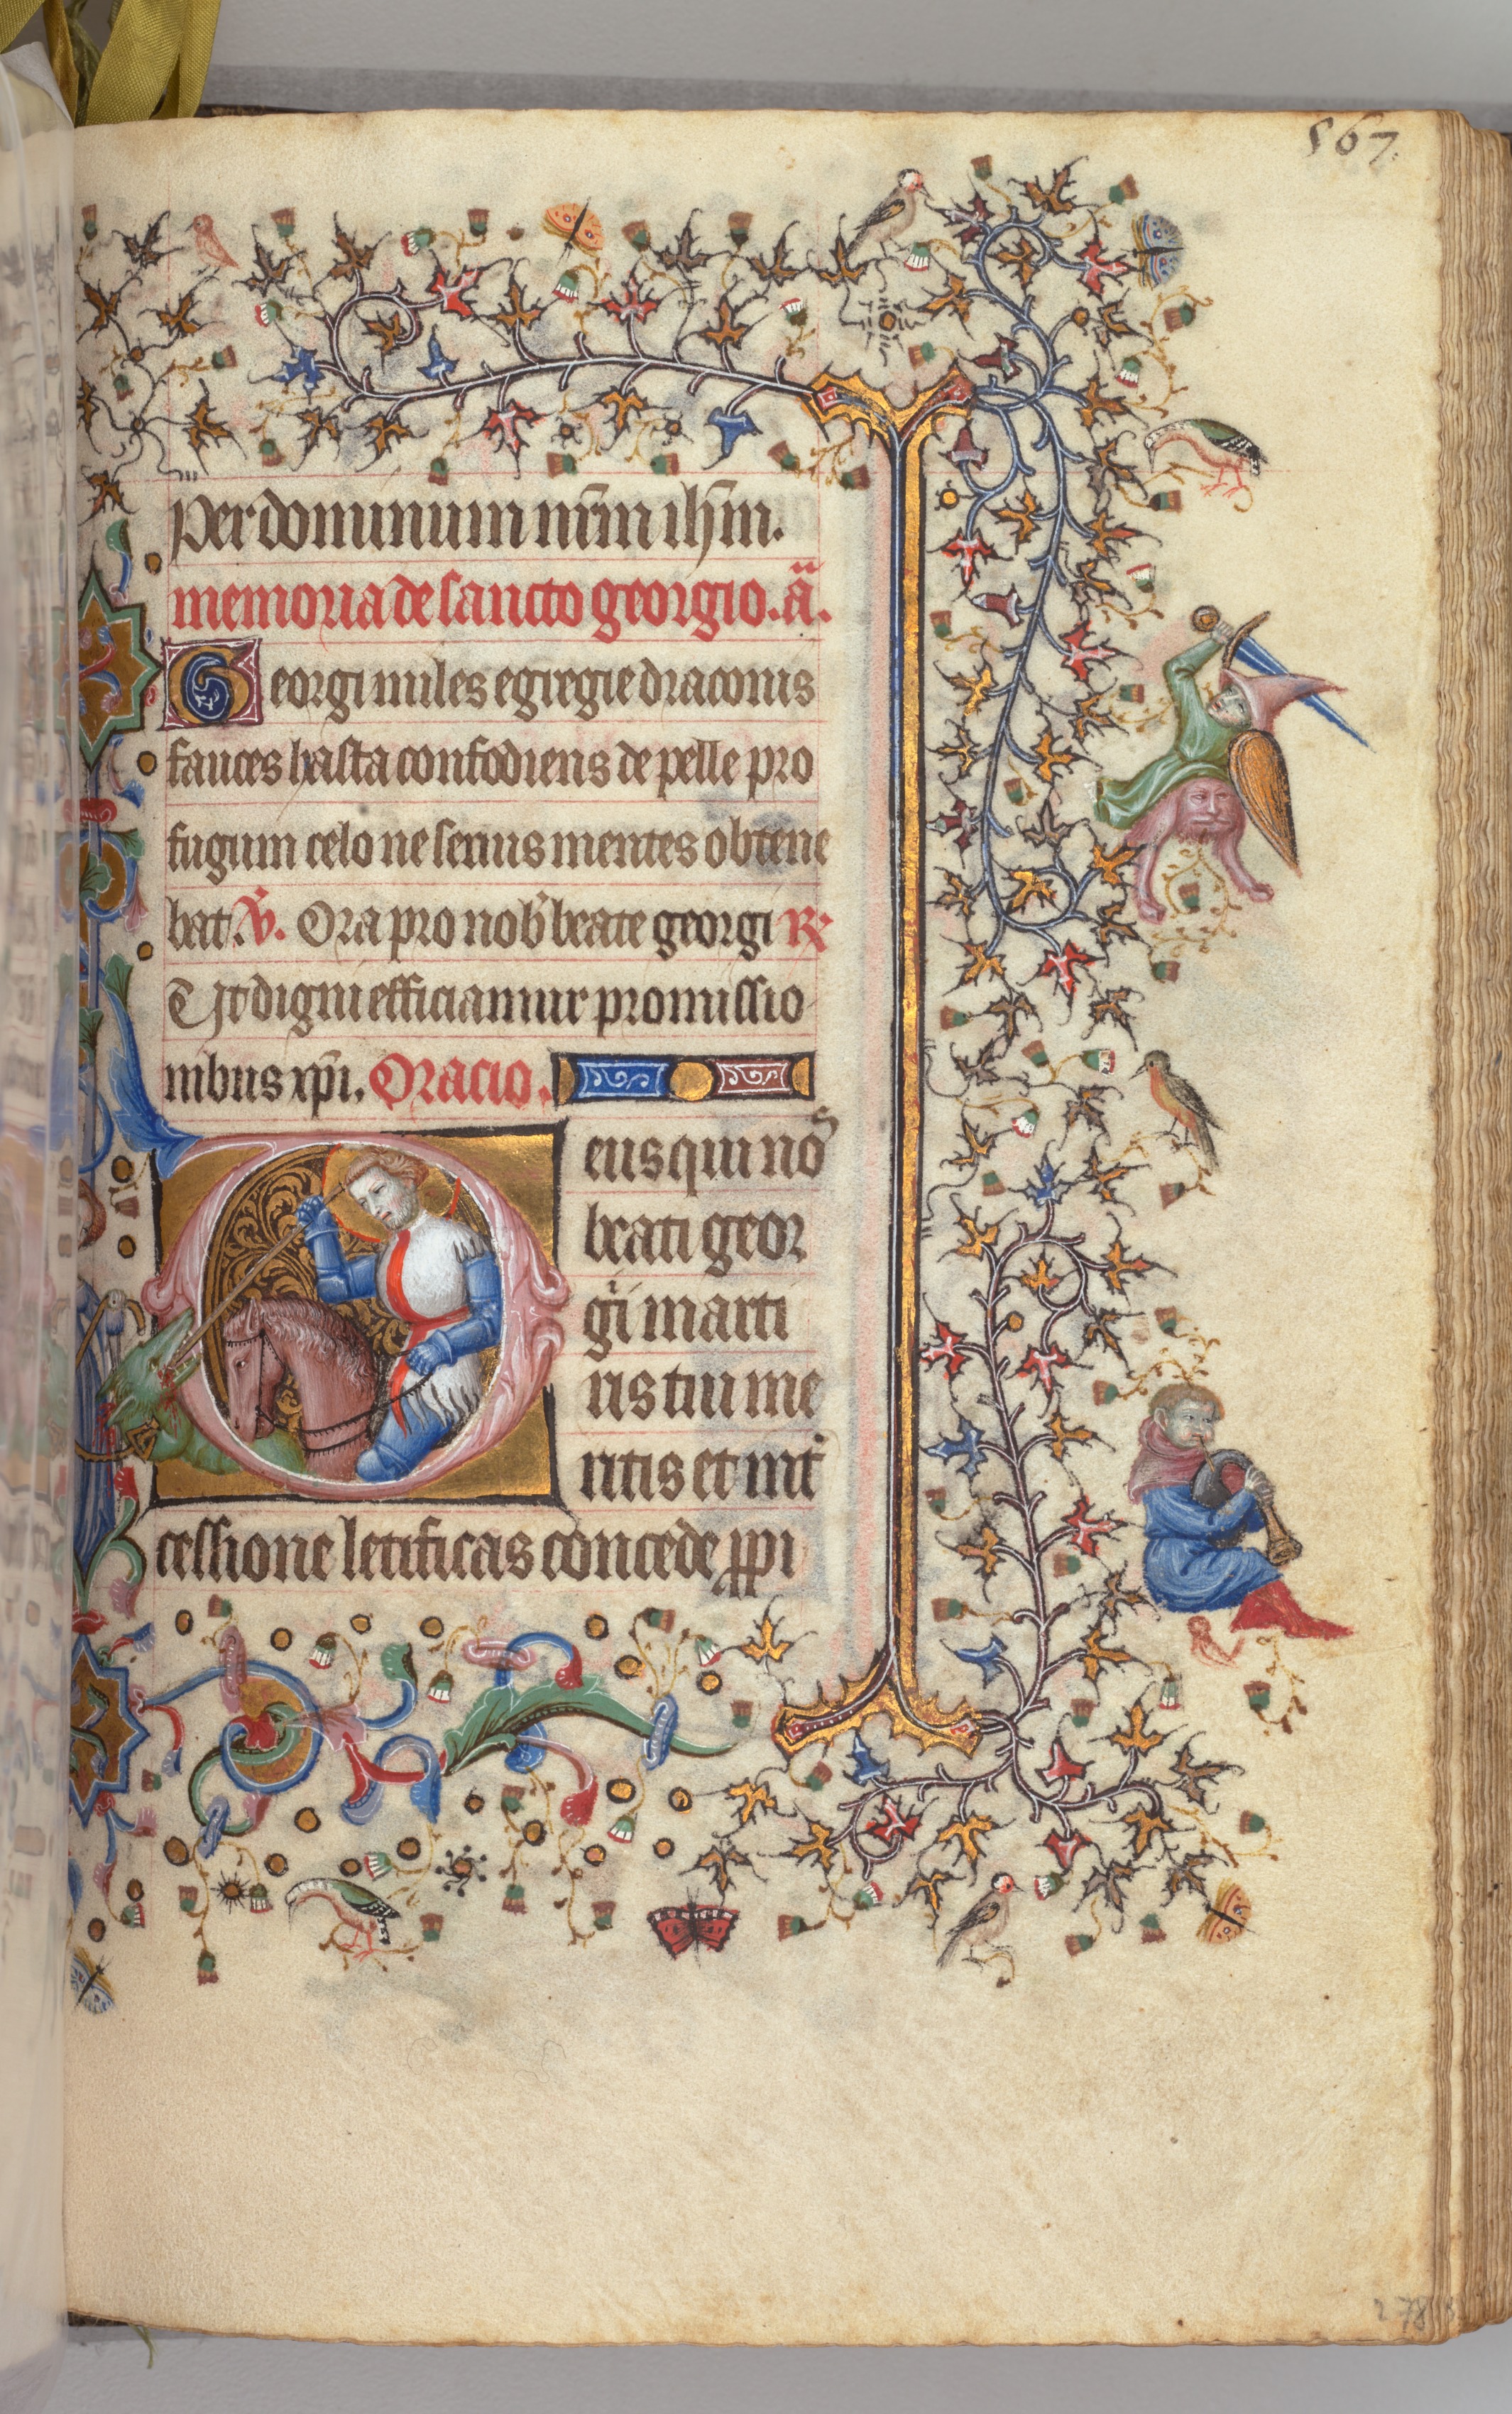 567.
per dominum nr̄m ih̄m.
memoria de sancto georgio. ā.
Georgi miles egregie draconis
fauces hasta confodiens de pelle pro
fugum celo ne senus mentes obtene
bat. V̄. Ora pro nob̄ beate georgi R̄
Ut digni efficiamur promissio
nibus xp̄i. Oracio.
Deus qui nos
beati geor
gii marti
ris tui me
ritis et int̄
cessione letificas concede ppi
278